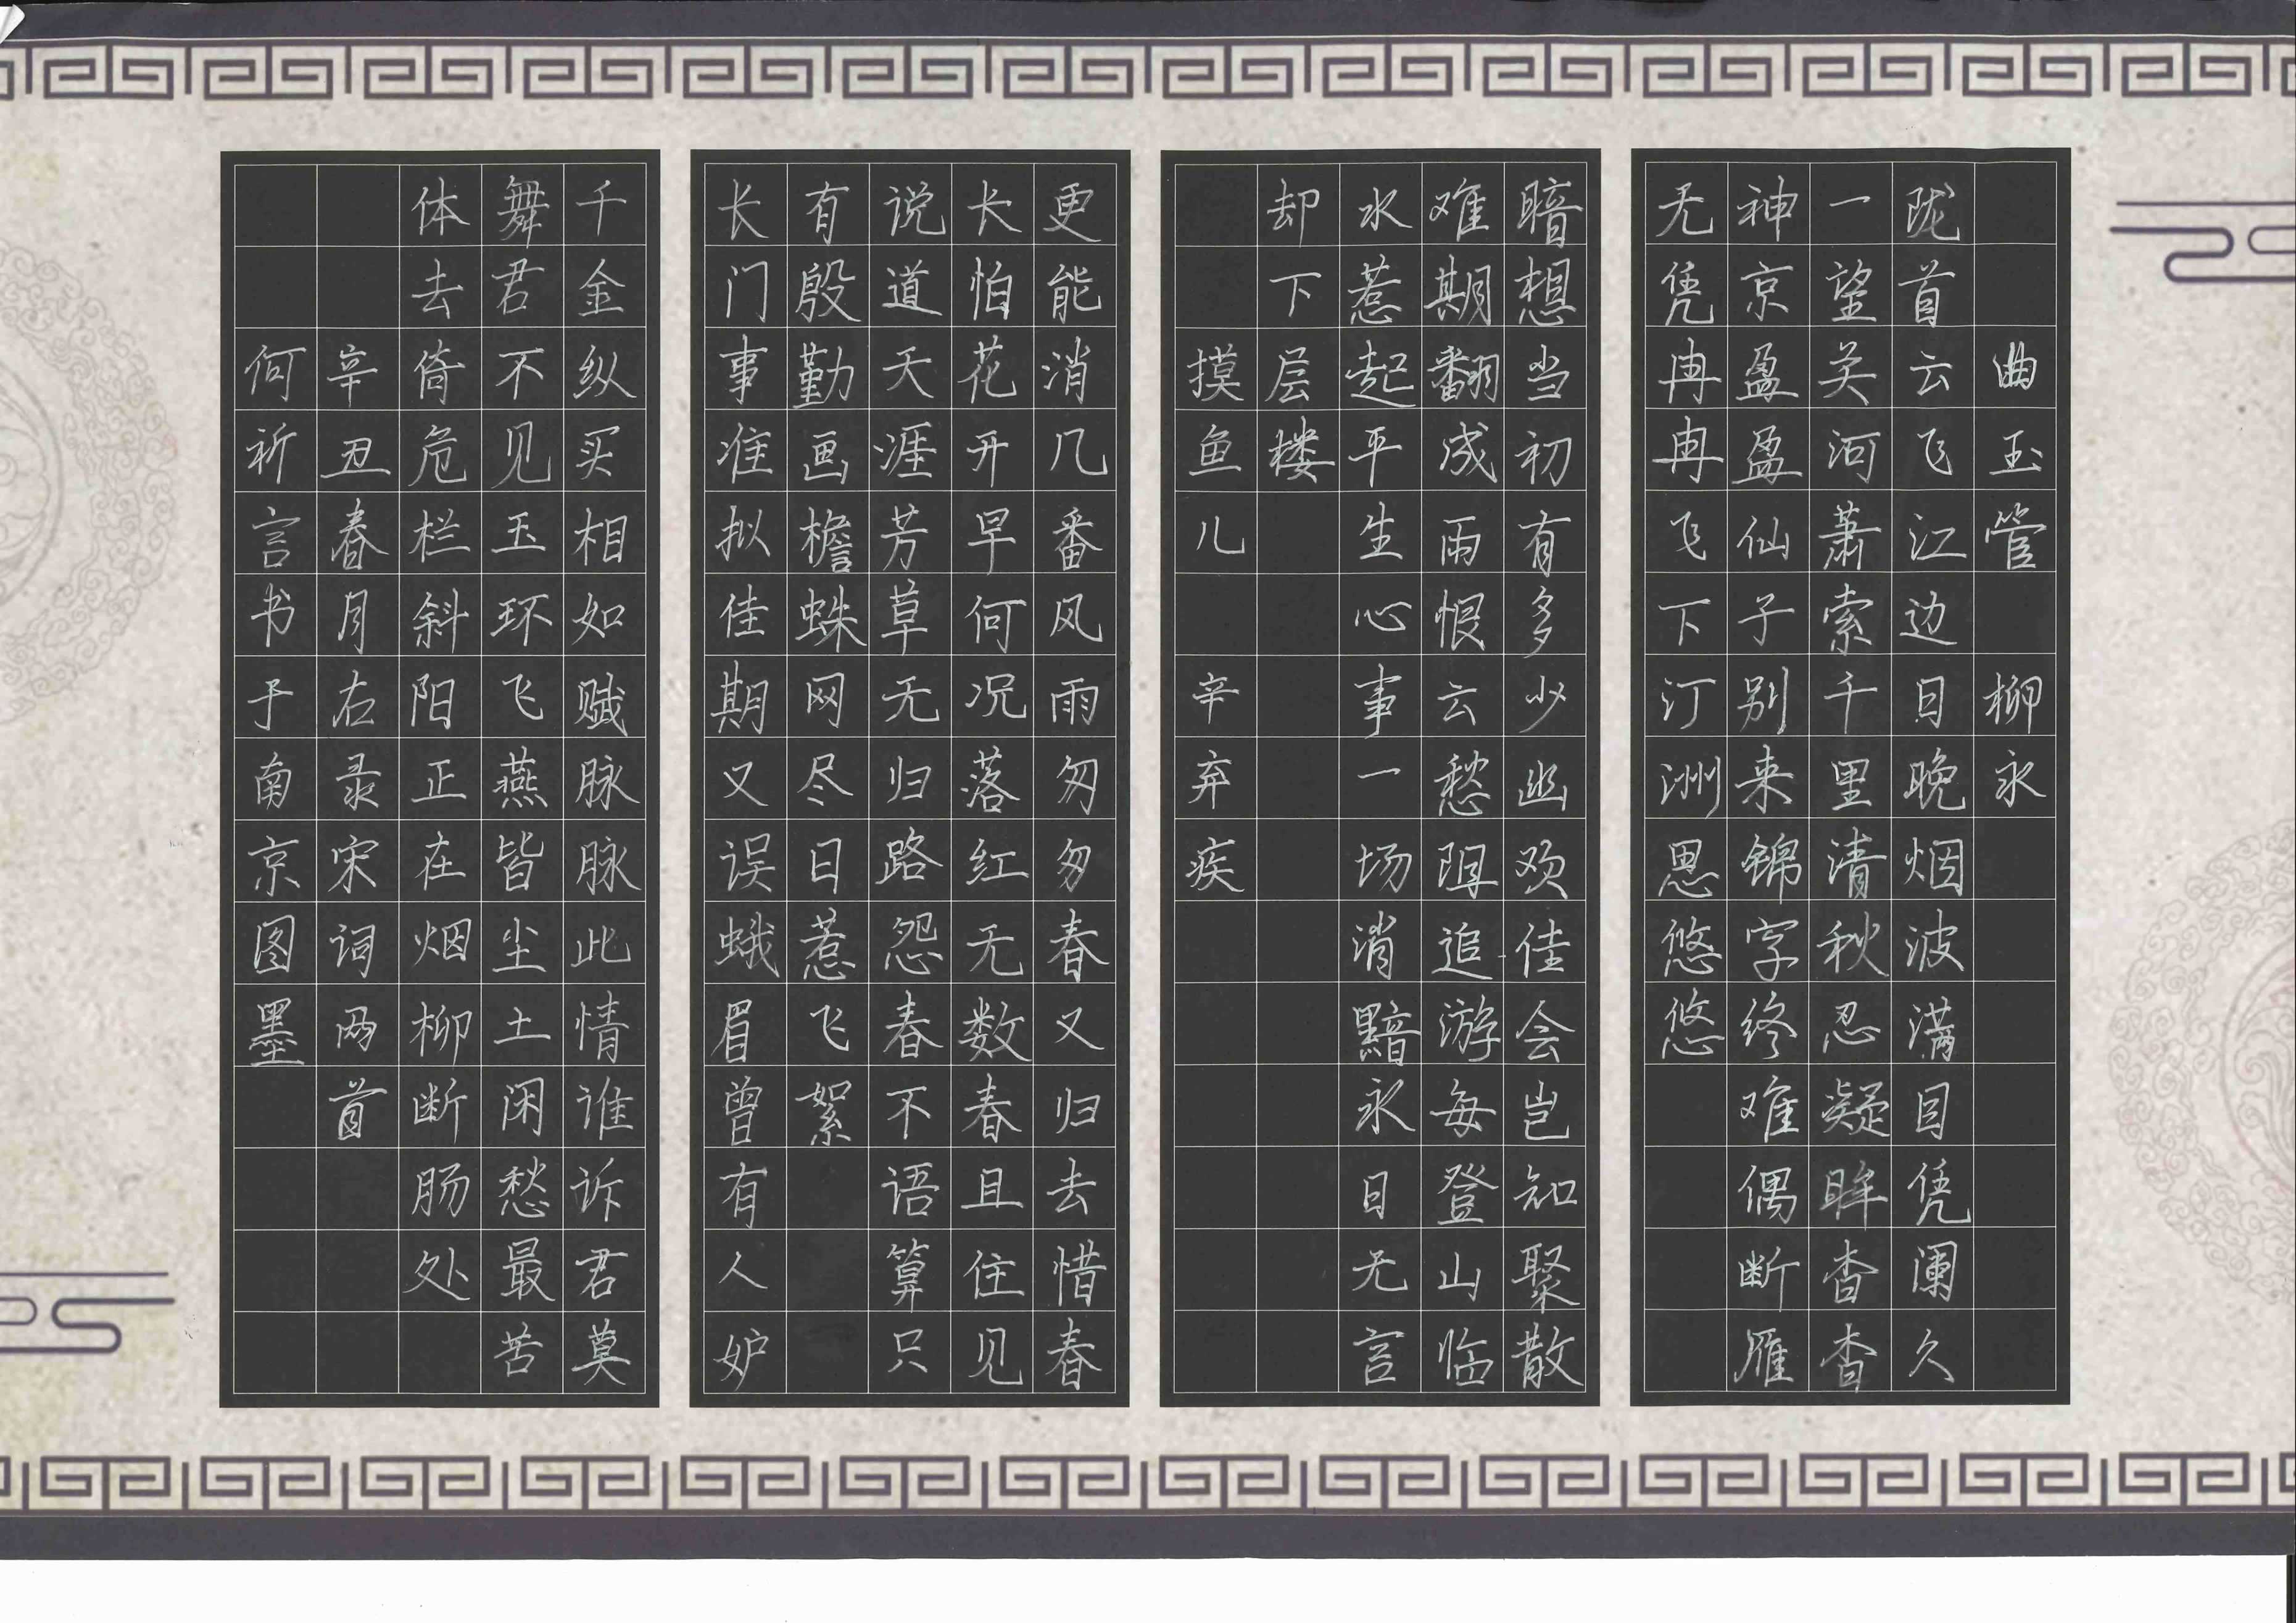 曲玉管 柳永
陇首云飞江边日晚烟波满目凭阑久
一望关河萧索千里清秋忍凝眸杳杳
神京盈盈仙子别来锦字终难偶断雁
无凭冉冉飞下汀洲思悠悠
暗想当初有多少幽欢佳会岂知聚散
难期翻成雨恨云愁阻追游每登山临
水惹起平生心事一场消黯永日无言
却下层楼
摸鱼儿 辛弃疾
更能消几番风雨匆匆春又归去惜春
长怕花开早何况落红无数春且住见
说道天涯芳草无归路怨春不语算只
有殷勤画檐蛛网尽日惹飞絮
长门事准拟佳期又误蛾眉曾有人妒
千金纵买相如赋脉脉此情谁诉君莫
舞君不见玉环飞燕皆尘土闲愁最苦
体去倚危栏斜阳正在烟柳断肠处
辛丑春月右录宋词两首
何祈言书于南京图墨